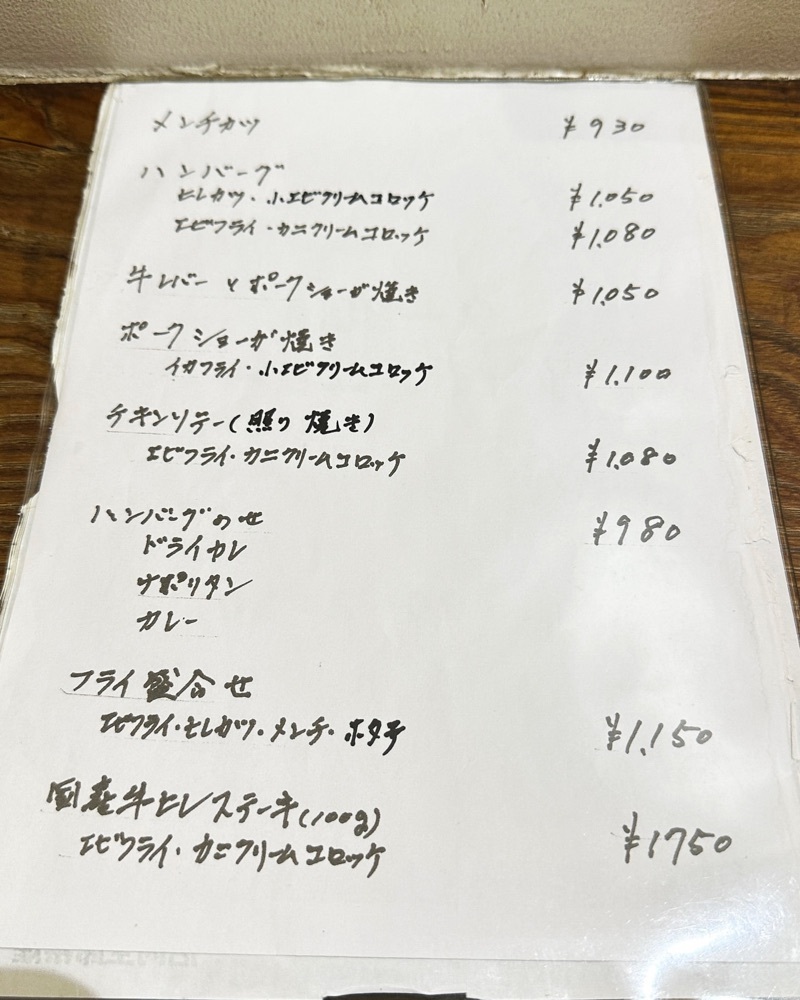 メンチカツ ¥930
ハンバーグ
ヒレカツ・小エビクリームコロッケ ¥1.050
エビフライ・カニクリームコロッケ ¥1.080
牛レバーとポークショーガ焼き ¥1.050
ポークショーガ焼き
イカフライ・小エビクリームコロッケ ¥1.100
チキンソテー(照り焼き)
エビフライ・カニクリームコロッケ ¥1.080
ハンバーグのせ ¥980
ドライカレ
ナポリタン
カレー
フライ盛合せ
エビフライ・ヒレカツ・メンチ・ホタテ ¥1,150
国産牛ヒレステーキ(100g)
エビフライ・カニクリームコロッケ ¥1750